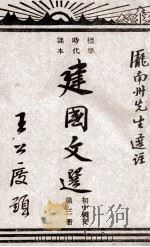 龐南卅先生選注
標準
時代
課本
建國文選
初中國文
第三冊
王公度題